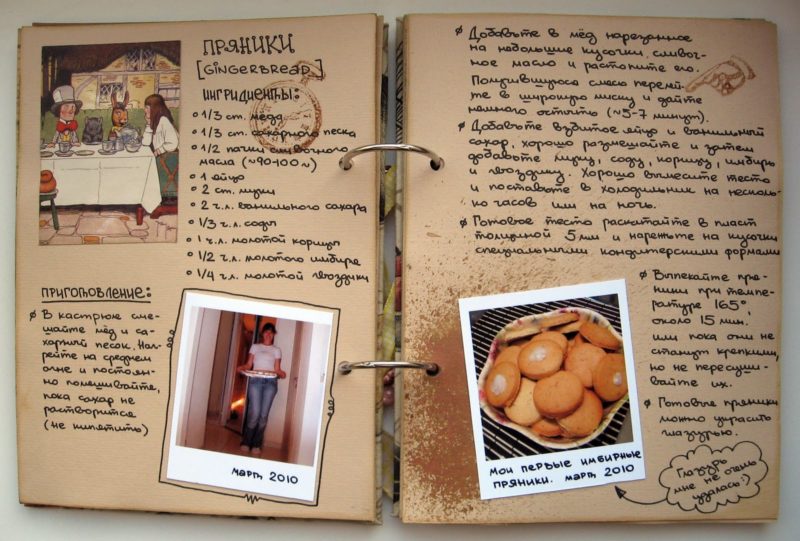 ПРЯНИКИ
[GINGERBREAD]
ИНГРИДИЕНТЫ:
1/3 ст. мёда
1/3 ст. сахарного песка
1/2 пачки сливочного
масла (~90-100 г)
1 яйцо
2 ст. муки
2 ч.л. ванильного сахара
1/3 ч.л. соды
1 ч.л. молотой корицы
1/2 ч.л. молотого имбиря
1/4 ч.л. молотой гвоздики
ПРИГОТОВЛЕНИЕ:
В кастрюле сме-
шайте мёд и са-
харный песок. Наг-
рейте на среднем
огне и постоян-
но помешивайте,
пока сахар не
растворится
(не кипятить)
март, 2010
Добавьте в мёд нарезанное
на небольшие кусочки сливоч-
ное масло и растопите его.
Получившуюся смесь перелей-
те в широкую миску и дайте
немного остыть (~5-7 минут).
Добавьте взбитое яйцо и ванильный
сахар, хорошо размешайте и затем
добавьте муку, соду, корицу, имбирь
и гвоздику. Хорошо вымесите тесто
и поставьте в холодильник на несколь-
ко часов или на ночь.
Готовое тесто раскатайте в пласт
толщиной 5 мм и нарежьте на кусочки
специальными кондитерскими формами
Выпекайте пря-
ники при темпе-
ратуре 165°,
около 15 мин.
или пока они не
станут крепкими,
но не пересуши-
вайте их.
Готовые пряники
можно украсить
глазурью.
Мои первые имбирные
пряники. март, 2010
Глазурь
мне не очень
удалась :)